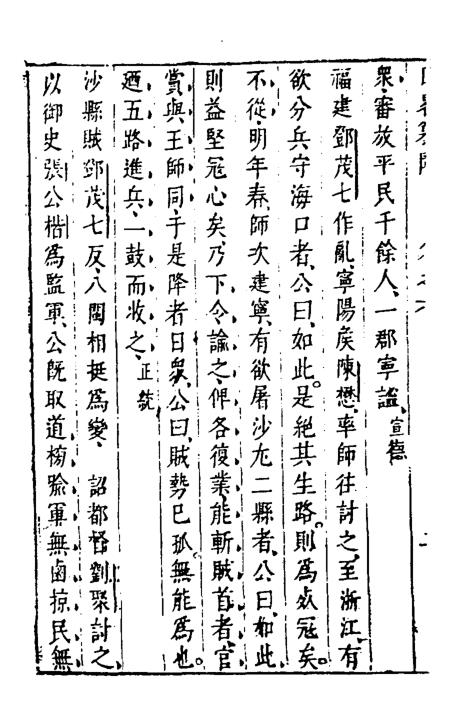 衆、審放平民千餘人、一郡寧謐、宣德
福建鄧茂七作亂、寧陽矦陳懋、率師往討之、至浙江、有
欲分兵守海口者、公曰、如此、是絶其生路、則爲死冦矣。
不從、明年春、師次建寧、有欲屠沙尤二縣者、公曰、如此
則益堅冦心矣、乃下令諭之、俾各復業、能斬賊首者、官
賞與王師同、于是降者日衆、公曰、賊勢已孤、無能爲也。
廼五路進兵、一鼓而收之、正統
沙縣賊鄧茂七反、八閩相挺爲變、詔都督劉聚討之、
以御史張公楷爲監軍、公既取道榆軍無鹵掠、民無